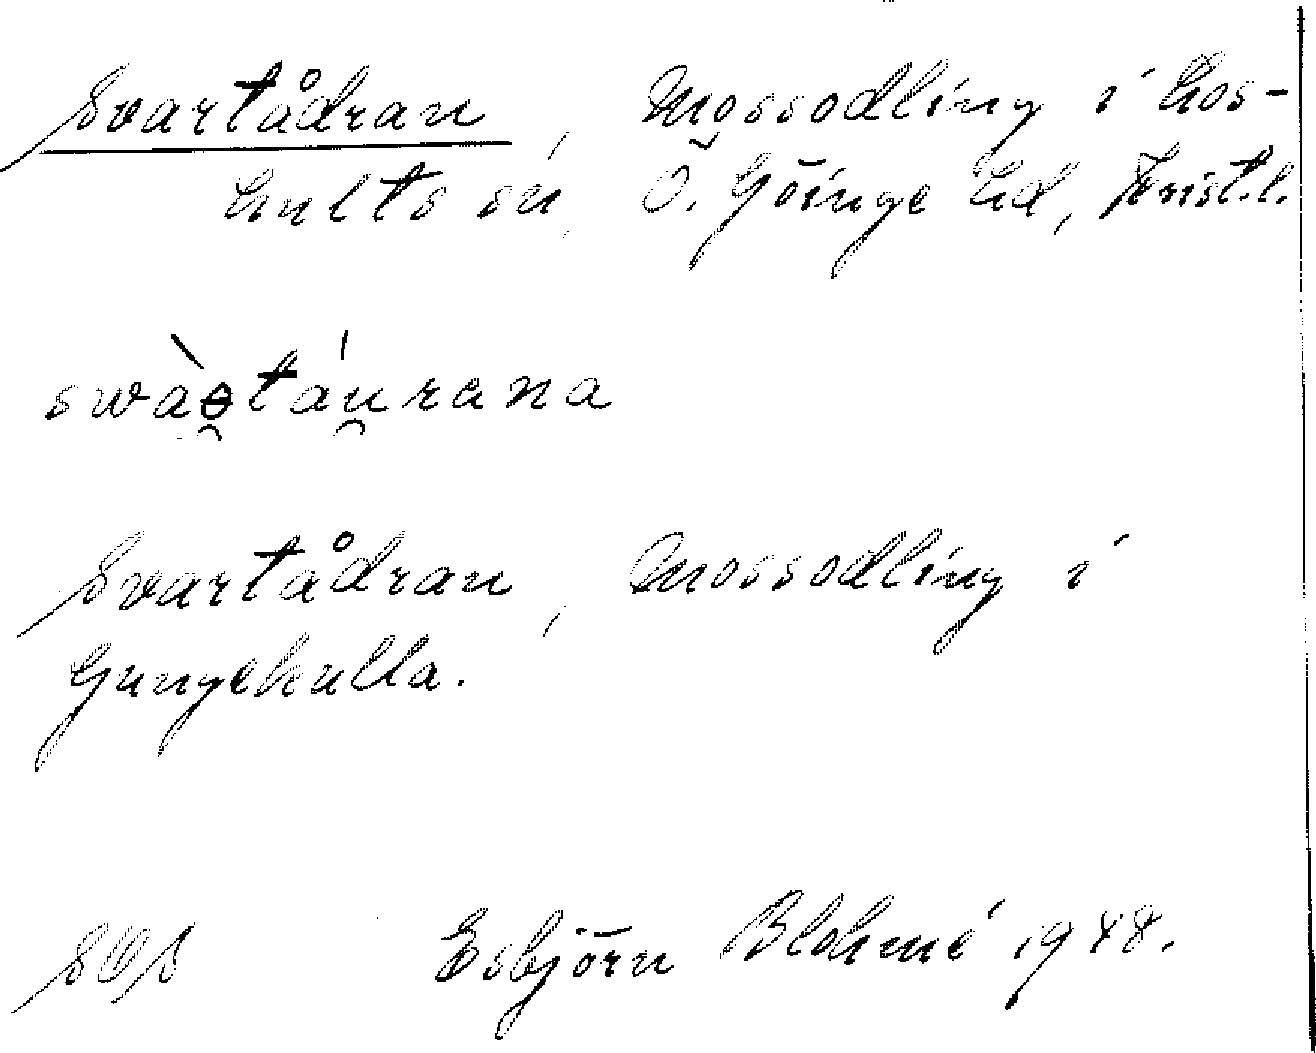 Svartådran, Mossodling i Los-
hults sn, Ö. Göinge hd, Krist.l.
Svartådran, Mossodling i
Gungekulla.
SOS Esbjörn Blohmé 1948.